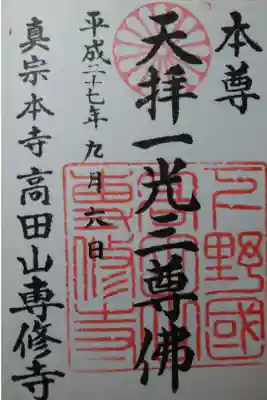 本尊
天拝一光三尊佛
平成二十七年九月六日
真宗本寺高田山専修寺
下野國
専修寺